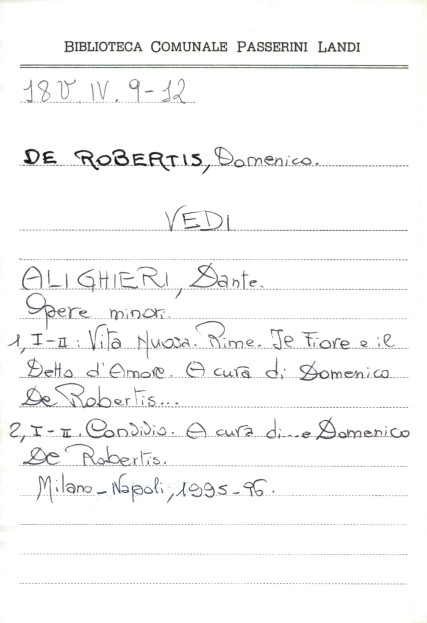 BIBLIOTECA COMUNALE PASSERINI LANDI
18 V. IV. 9-12
DE ROBERTIS, Domenico.
VEDI
ALIGHIERI, Dante.
Opere minori.
1, I-II: Vita Nuova. Rime. Il Fiore e il
Detto d'Amore. A cura di Domenico
De Robertis...
2, I-II. Convivio. A cura di... e Domenico
De Robertis.
Milano-Napoli, 1995-96.